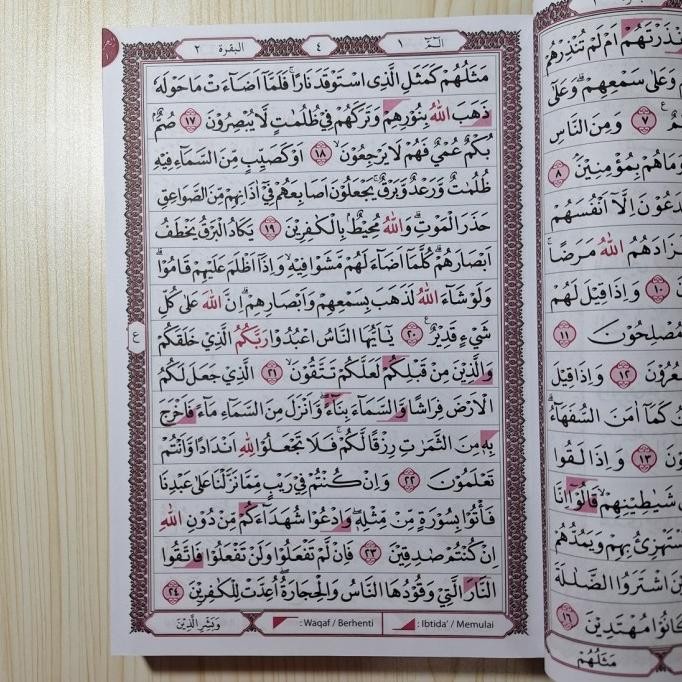 البقرة ٢
٤
الٓمّٓ ١
مَثَلُهُمْ كَمَثَلِ الَّذِى اسْتَوْقَدَ نَارًاۚ فَلَمَّآ اَضَاۤءَتْ مَا حَوْلَهٗ
ذَهَبَ اللّٰهُ بِنُوْرِهِمْ وَتَرَكَهُمْ فِيْ ظُلُمٰتٍ لَّا يُبْصِرُوْنَ ١٧ صُمٌّۢ
بُكْمٌ عُمْيٌ فَهُمْ لَا يَرْجِعُوْنَۙ ١٨ اَوْ كَصَيِّبٍ مِّنَ السَّمَاۤءِ فِيْهِ
ظُلُمٰتٌ وَّرَعْدٌ وَّبَرْقٌۚ يَجْعَلُوْنَ اَصَابِعَهُمْ فِيْٓ اٰذَانِهِمْ مِّنَ الصَّوَاعِقِ
حَذَرَ الْمَوْتِۗ وَاللّٰهُ مُحِيْطٌۢ بِالْكٰفِرِيْنَ ١٩ يَكَادُ الْبَرْقُ يَخْطَفُ
اَبْصَارَهُمْۗ كُلَّمَآ اَضَاۤءَ لَهُمْ مَّشَوْا فِيْهِۙ وَاِذَآ اَظْلَمَ عَلَيْهِمْ قَامُوْاۗ
وَلَوْ شَاۤءَ اللّٰهُ لَذَهَبَ بِسَمْعِهِمْ وَاَبْصَارِهِمْۗ اِنَّ اللّٰهَ عَلٰى كُلِّ
شَيْءٍ قَدِيْرٌ ࣖ ٢٠ يٰٓاَيُّهَا النَّاسُ اعْبُدُوْا رَبَّكُمُ الَّذِيْ خَلَقَكُمْ
وَالَّذِيْنَ مِنْ قَبْلِكُمْ لَعَلَّكُمْ تَتَّقُوْنَۙ ٢١ الَّذِيْ جَعَلَ لَكُمُ
الْاَرْضَ فِرَاشًا وَّالسَّمَاۤءَ بِنَاۤءً وَّاَنْزَلَ مِنَ السَّمَاۤءِ مَاۤءً فَاَخْرَجَ
بِهٖ مِنَ الثَّمَرٰتِ رِزْقًا لَّكُمْۚ فَلَا تَجْعَلُوْا لِلّٰهِ اَنْدَادًا وَّاَنْتُمْ
تَعْلَمُوْنَ ٢٢ وَاِنْ كُنْتُمْ فِيْ رَيْبٍ مِّمَّا نَزَّلْنَا عَلٰى عَبْدِنَا
فَأْتُوْا بِسُوْرَةٍ مِّنْ مِّثْلِهٖۖ وَادْعُوْا شُهَدَاۤءَكُمْ مِّنْ دُوْنِ اللّٰهِ
اِنْ كُنْتُمْ صٰدِقِيْنَ ٢٣ فَاِنْ لَّمْ تَفْعَلُوْا وَلَنْ تَفْعَلُوْا فَاتَّقُوا
النَّارَ الَّتِيْ وَقُوْدُهَا النَّاسُ وَالْحِجَارَةُۖ اُعِدَّتْ لِلْكٰفِرِيْنَ ٢٤
وَبَشِّرِ الَّذِيْنَ
: Waqaf / Berhenti
: Ibtida' / Memulai
ع
ـنْذَرْتَهُمْ اَمْ لَمْ تُنْذِرْهُمْ
وَعَلٰى سَمْعِهِمْۗ وَعَلٰٓى
٧ وَمِنَ النَّاسِ
وَمَا هُمْ بِمُؤْمِنِيْنَۘ ٨
ـدَعُوْنَ اِلَّآ اَنْفُسَهُمْ
فَزَادَهُمُ اللّٰهُ مَرَضًاۚ
١٠ وَاِذَا قِيْلَ لَهُمْ
مُصْلِحُوْنَ ١١
ـعُرُوْنَ ١٢ وَاِذَا قِيْلَ
كَمَآ اٰمَنَ السُّفَهَاۤءُۗ
١٣ وَاِذَا لَقُوا
شَيٰطِيْنِهِمْۙ قَالُوْٓا اِنَّا
ـسْتَهْزِئُ بِهِمْ وَيَمُدُّهُمْ
ـنَ اشْتَرَوُا الضَّلٰلَةَ
كَانُوْا مُهْتَدِيْنَ ١٦
مَثَلُهُمْ